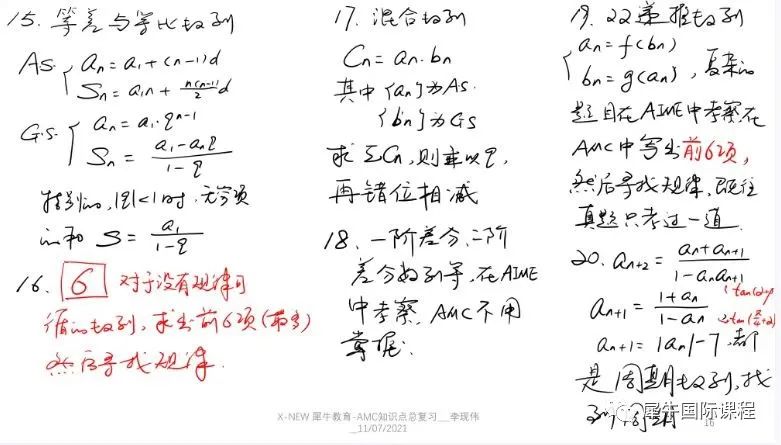 15. 等差与等比数列
A.S. { an = a1 + (n-1)d
Sn = a1n + n(n-1)/2 d
G.S. { an = a1·q^(n-1)
Sn = (a1 - anq)/(1-q)
特别的, |q|<1时, 无穷项
的和 S = a1/(1-q)
16. 6 对于没有规律可
循的数列, 求出前6项(最多)
然后寻找规律.
17. 混合数列
Cn = an·bn
其中{an}为A.S.
{bn}为GS
求ΣCn, 则乘以q,
再错位相减
18. 一阶差分、二阶
差分数列等, 在AIME
中考察, AMC不用
掌握.
19. 双递推数列
{ an = f(bn)
bn = g(an) , 复杂的
题目在AIME中考察在
AMC中写出前6项,
然后寻找规律, 既往
真题只考过一道.
20. an+2 = (an + an+1)/(1 - an an+1)
an+1 = (1+an)/(1-an)
an+1 = |an| - 7, 都
是周期数列, 找
到周期
X-NEW 犀牛教育-AMC知识点总复习__李现伟
_11/07/2021
16
犀牛国际课程